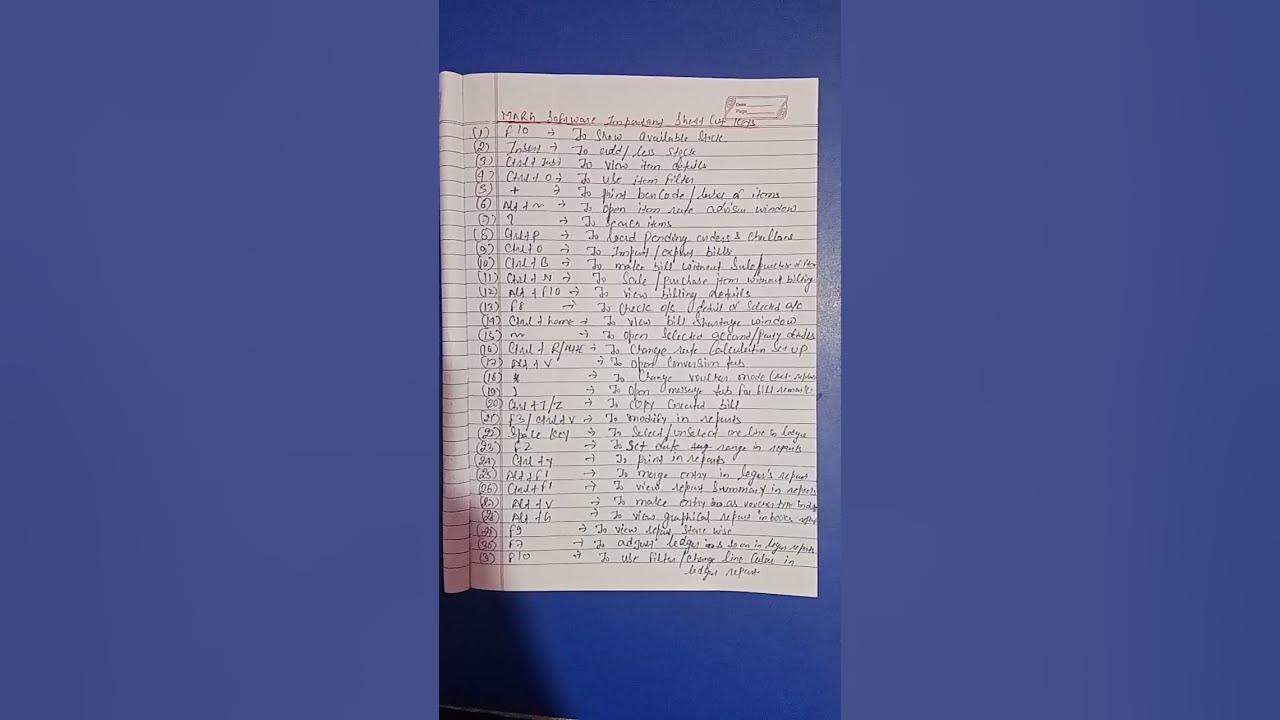 Date
Page
MARG Software Important Short Cut Keys
(1) F10 → To Show available Stock
(2) Insert → To add/less stock
(3) Ctrl + To view item details
(4) Ctrl + O → To use item filter
(5) + → To print barcode/ of items
(6) Alt + ~ → To open item rate window
(7) ? → To search items
(8) Ctrl+P → To load pending orders & challans
(9) Ctrl+O → To Import/export bills
(10) Ctrl+B → To make bill without Sale/purchase of
(11) Ctrl+N → To Sale/purchase item without billing
(12) Alt + F10 → To view billing details
(13) F8 → To check a/c detail of selected a/c
(14) Ctrl + home → To view bill Shortage window
(15) ~ → To open selected account/party details
(16) Ctrl + R/ → To change rate calculation set up
(17) Alt + V → To open conversion tab
(18) * → To change voucher mode
(19) ) → To open message tab for bill remarks
(20) Ctrl + T/Z → To copy bill
(21) F3/Ctrl+V → To modify in reports
(22) Space key → To select/unselect one line in ledger
(23) F2 → To set date range in reports
(24) Ctrl + y → To print in reports
(25) Alt + F1 → To merge entry in report
(26) Ctrl+F1 → To view report summary in reports
(27) Alt + V → To make entry as voucher type in
(28) Alt + G → To view graphical report in books
(29) F9 → To view report wise
(30) F7 → To adjust ledger & so on in ledger reports
(31) F10 → To use filter/change line in
ledger report